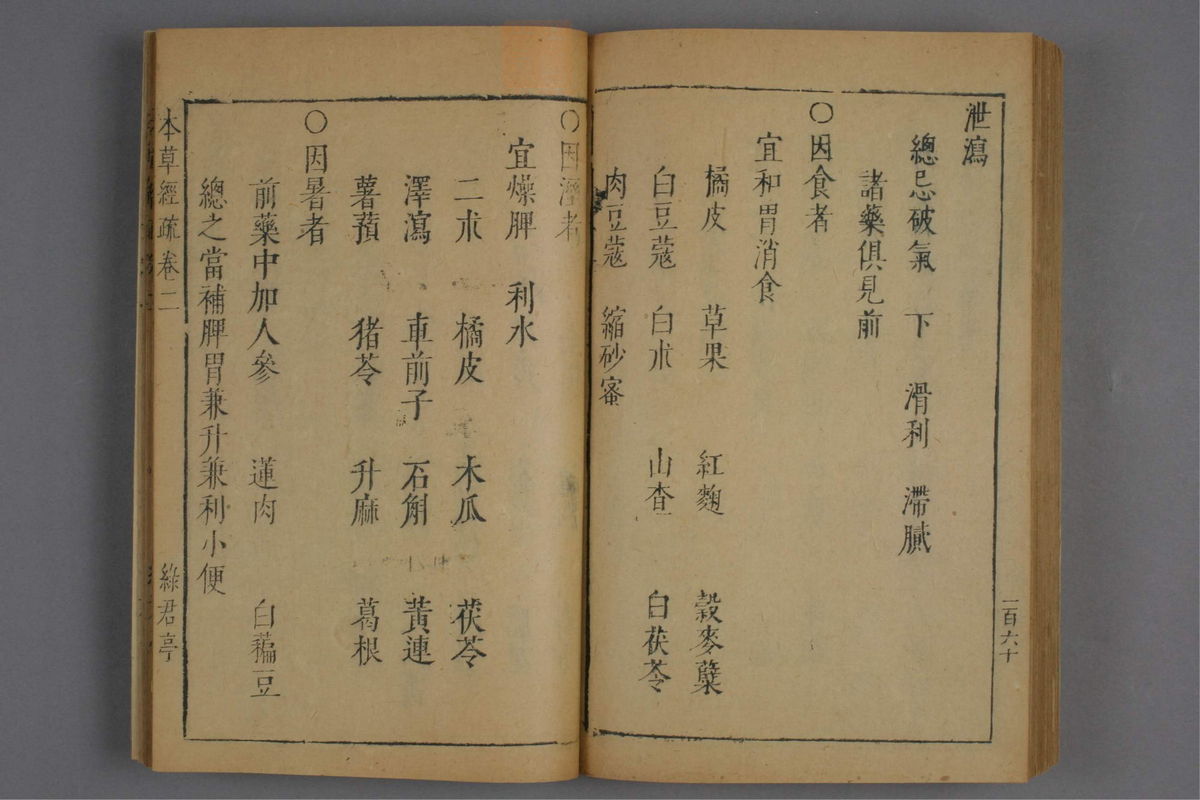 泄瀉
總忌破氣 下 滑利 滯膩
諸藥俱見前
○因食者
宜和胃消食
橘皮 草果 紅麴 穀麥糵
白豆蔻 白朮 山查 白茯苓
肉豆蔻 縮砂蜜
一百六十
○因濕者
宜燥脾 利水
二朮 橘皮 木瓜 茯苓
澤瀉 車前子 石斛 黃連
薯蕷 猪苓 升麻 葛根
○因暑者
前藥中加人參 蓮肉 白藊豆
總之當補脾胃兼升兼利小便
本草經疏卷二 綠君亭